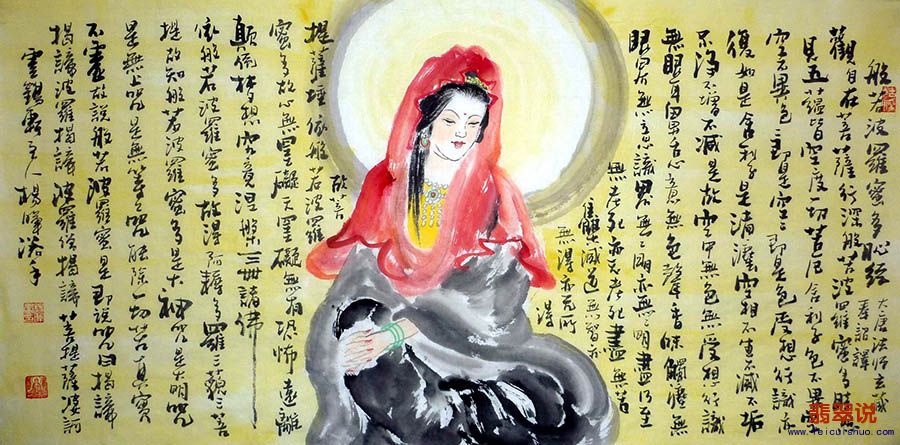 般若波羅蜜多心經
大唐法師玄奘
奉詔譯
觀自在菩薩行深般若波羅蜜多時照
見五蘊皆空度一切苦厄舍利子色不異
空空不異色色即是空空即是色受想行識亦
復如是舍利子是諸法空相不生不滅不垢
不淨不增不減是故空中無色無受想行識
無眼耳鼻舌身意無色聲香味觸法無
眼界無意識界無無明亦無無明盡乃至
無老死亦無老死盡無苦
集滅道無智亦
無得以無所
得
故菩
提薩埵依般若波羅
蜜多故心無罣礙無罣礙故無有恐怖遠離
顛倒夢想究竟涅槃三世諸佛
依般若波羅蜜多故得阿耨多羅三藐三菩
提故知般若波羅蜜多是大神咒是大明咒
是無上咒是無等等咒能除一切苦真實
不虛故說般若波羅蜜多咒即說咒曰揭諦
揭諦波羅揭諦波羅僧揭諦菩提薩婆訶
主人楊
翡翠说
www.feicuishuo.com